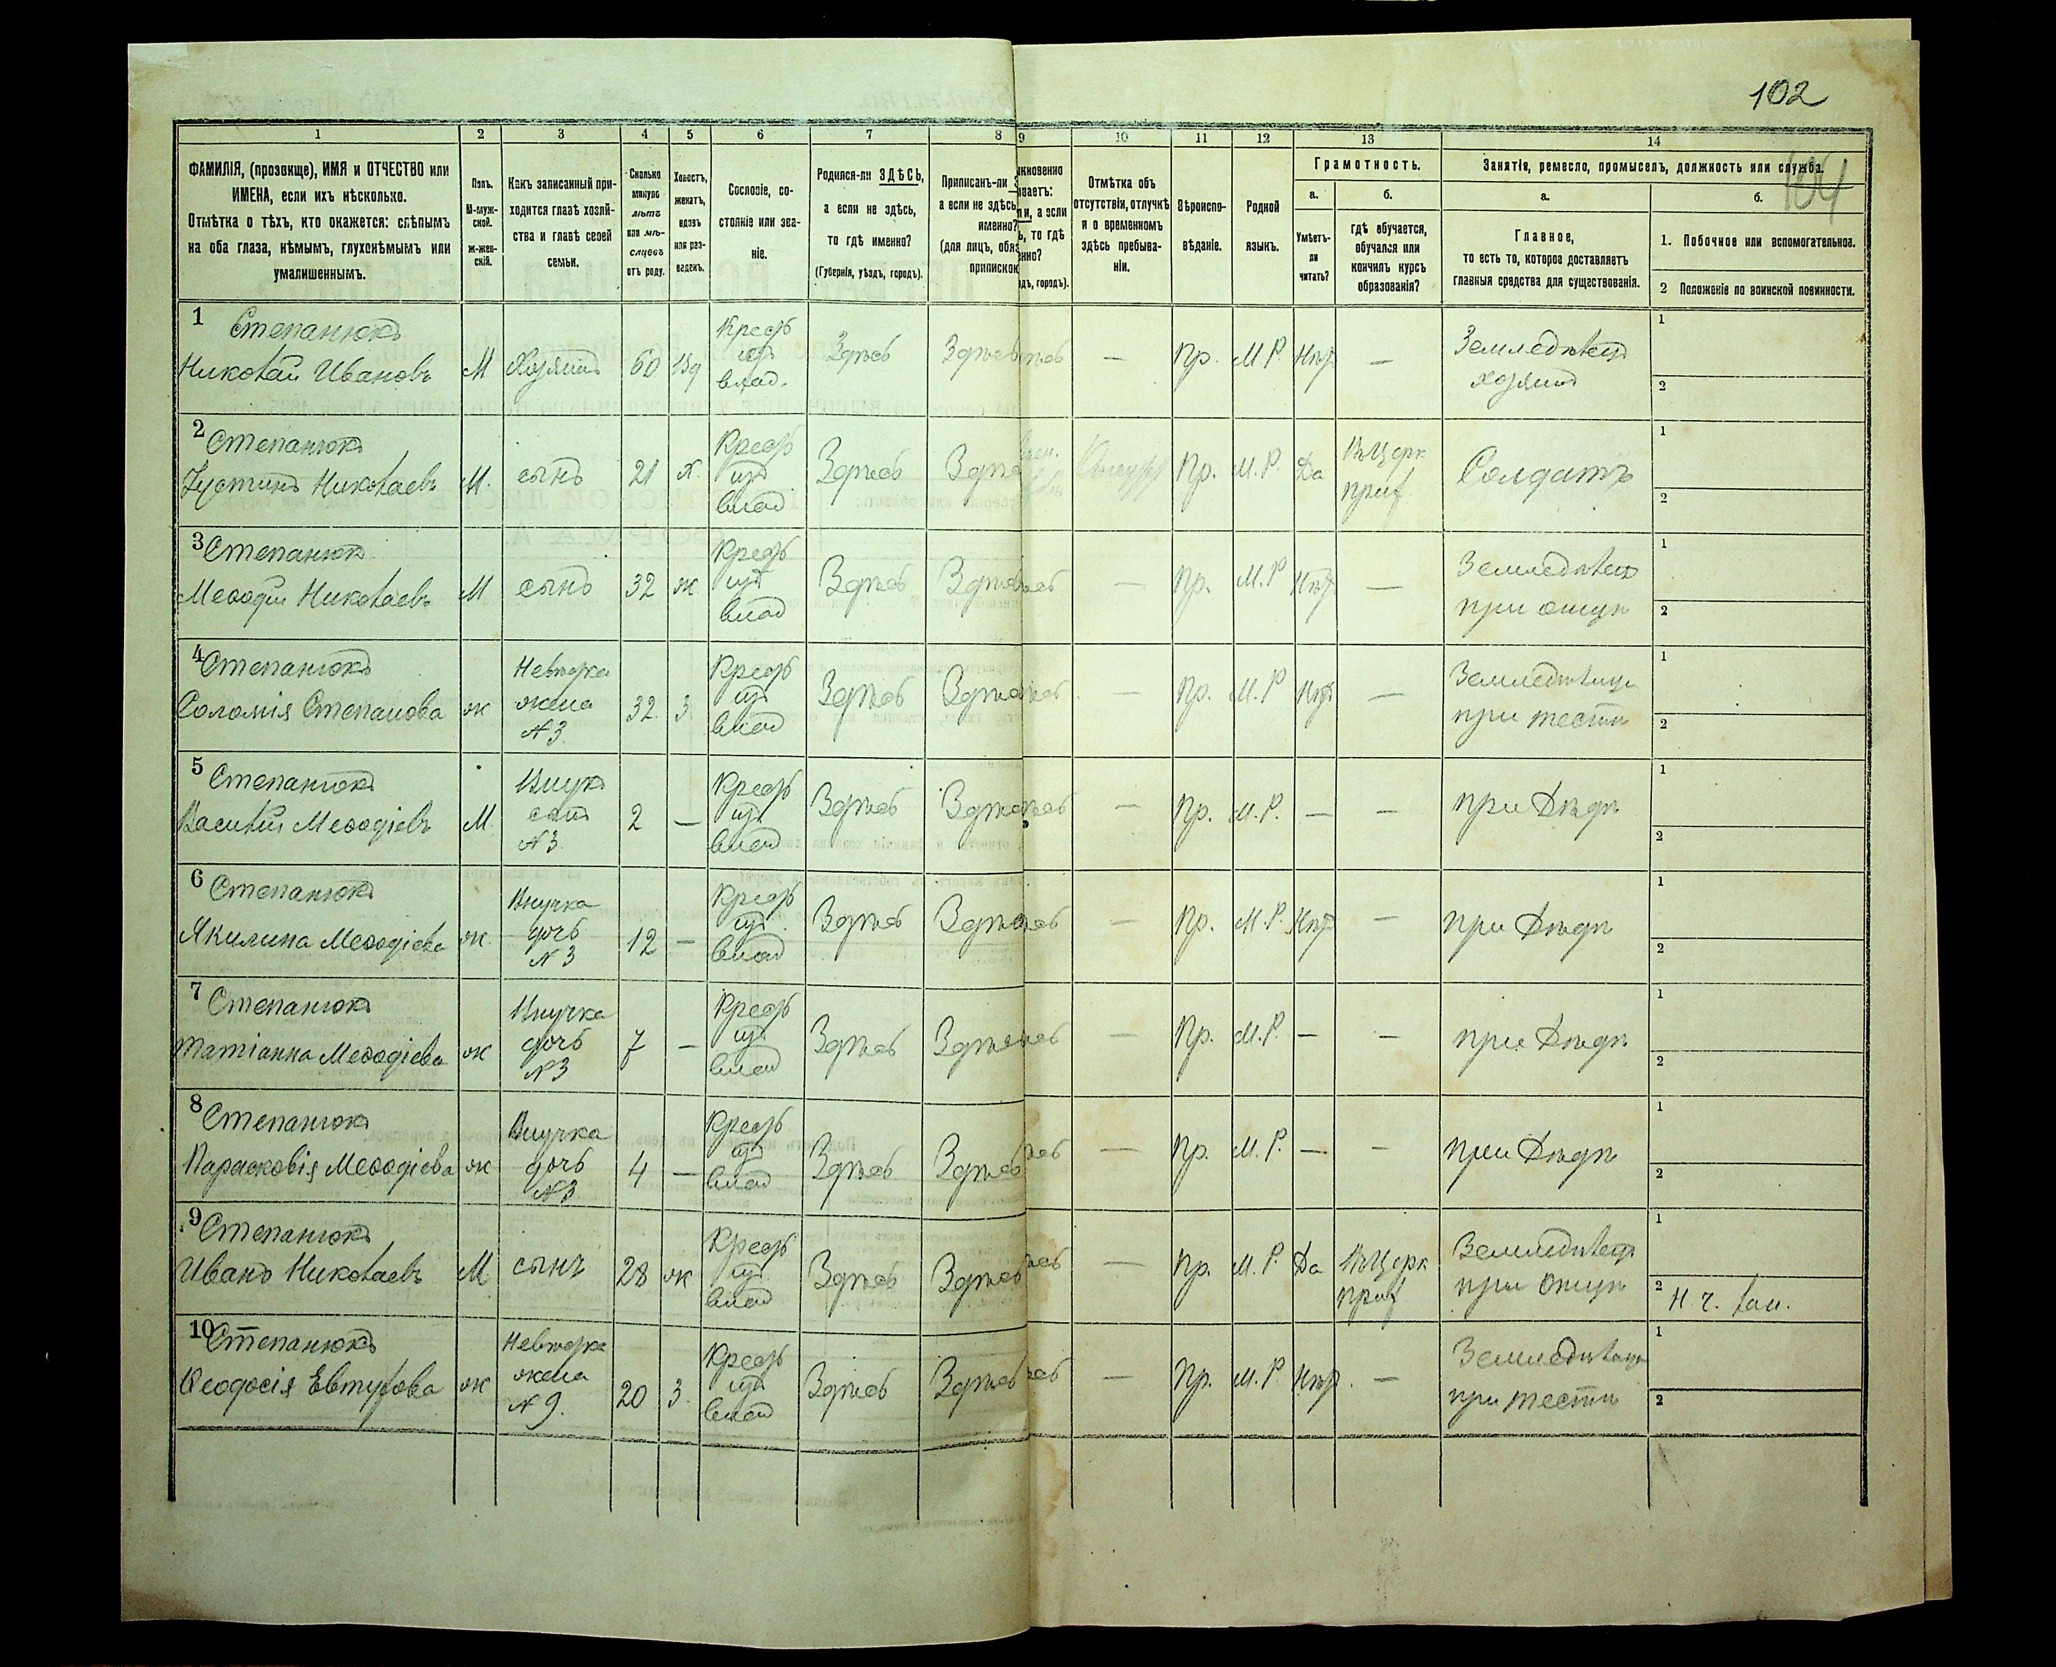 102
104
1 2 3 4 5 6 7 8 9 10 11 12 13 14
ФАМИЛІЯ, (прозвище), ИМЯ и ОТЧЕСТВО или
ИМЕНА, если ихъ нѣсколько.
Отмѣтка о тѣхъ, кто окажется: слѣпымъ
на оба глаза, нѣмымъ, глухонѣмымъ или
умалишеннымъ.
Полъ.
М-муж-
ской.
Ж-жен-
скій.
Какъ записанный при-
ходится главѣ хозяй-
ства и главѣ своей
семьи.
Сколько
минуло
лѣтъ
или мѣ-
сяцевъ
отъ роду.
Холостъ,
женатъ,
вдовъ
или раз-
веденъ.
Сословіе, со-
стояніе или зва-
ніе.
Родился-ли ЗДѢСЬ,
а если не здѣсь,
то гдѣ именно?
(Губернія, уѣздъ, городъ).
Приписанъ-ли
а если не здѣсь
именно?
(для лицъ, обяз
припискою
кновенно
ваетъ:
ли, а если
ь, то гдѣ
нно?
дъ, городъ).
Отмѣтка объ
отсутствіи, отлучкѣ
и о временномъ
здѣсь пребыва-
ніи.
Вѣроиспо-
вѣданіе.
Родной
языкъ.
Грамотность.
а.
Умѣетъ-
ли
читать?
б.
гдѣ обучается,
обучался или
кончилъ курсъ
образованія?
Занятія, ремесло, промыселъ, должность или служба.
а.
Главное,
то есть то, которое доставляетъ
главныя средства для существованія.
б.
1. Побочное или вспомогательное.
2 Положеніе по воинской повинности.
1 Степанюкъ
Николай Ивановъ М Хозяинъ 60 Вд Крестъ изъ влад. Здѣсь Здѣсь — Пр. М.Р. Нѣтъ — Земледѣлецъ хозяинъ 1 2
2 Степанюкъ
Іустинъ Николаевъ М. сынъ 21 х. Крестъ изъ влад Здѣсь Здѣсь Пр. М.Р. Да Въ Церк прих Солдатъ 1 2
3 Степанюкъ
Меѳодій Николаевъ М сынъ 32 ж. Крестъ изъ влад Здѣсь Здѣсь — Пр. М.Р Нѣтъ — Земледѣлецъ при отцѣ 1 2
4 Степанюкъ
Соломія Степанова ж Невѣстка жена №3. 32. З. Крестъ изъ влад Здѣсь Здѣсь — Пр. М.Р Нѣтъ — Земледѣлица при тестѣ 1 2
5 Степанюкъ
Василій Меѳодіевъ М. Внукъ сынъ №3. 2 — Крестъ изъ влад Здѣсь Здѣсь — Пр. М.Р. — — при Дѣдѣ 1 2
6 Степанюкъ
Якилина Меѳодіева ж. Внучка дочь №3 12 — Крестъ изъ влад Здѣсь Здѣсь — Пр. М.Р. Нѣтъ — при Дѣдѣ 1 2
7 Степанюкъ
Татіанна Меѳодіева ж Внучка дочь №3 7 — Крестъ изъ влад Здѣсь Здѣсь — Пр. М.Р. — — при Дѣдѣ 1 2
8 Степанюкъ
Парасковія Меѳодіева ж Внучка дочь №3 4 — Крестъ изъ влад Здѣсь Здѣсь — Пр. М.Р. — — при Дѣдѣ 1 2
9 Степанюкъ
Иванъ Николаевъ М сынъ 28 ж Крестъ изъ влад Здѣсь Здѣсь — Пр. М.Р. Да Въ Церк прих Земледѣлецъ при Отцѣ 1 2
10 Степанюкъ
Ѳеодосія Евтухова ж Невѣстка жена №9. 20 З. Крестъ изъ влад Здѣсь Здѣсь — Пр. М.Р Нѣтъ. — Земледѣлица при тестѣ 1 2